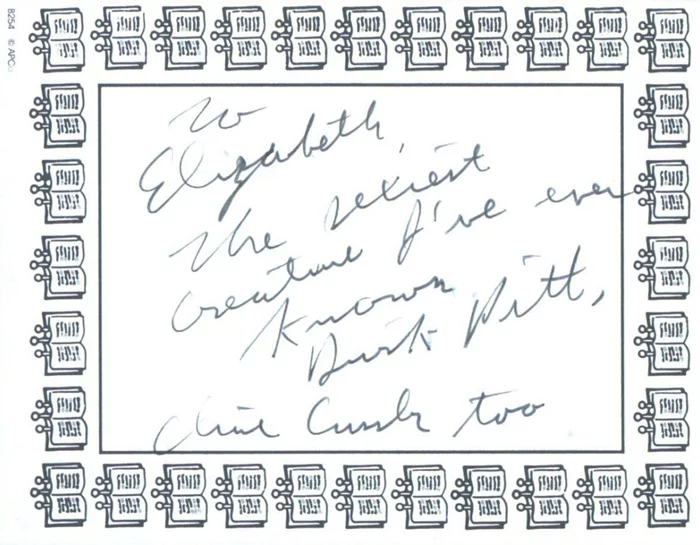 To
Elizabeth,
The sexiest
creature I've ever
known
Dirk Pitt,
Clive Cussler too
B254 © APC